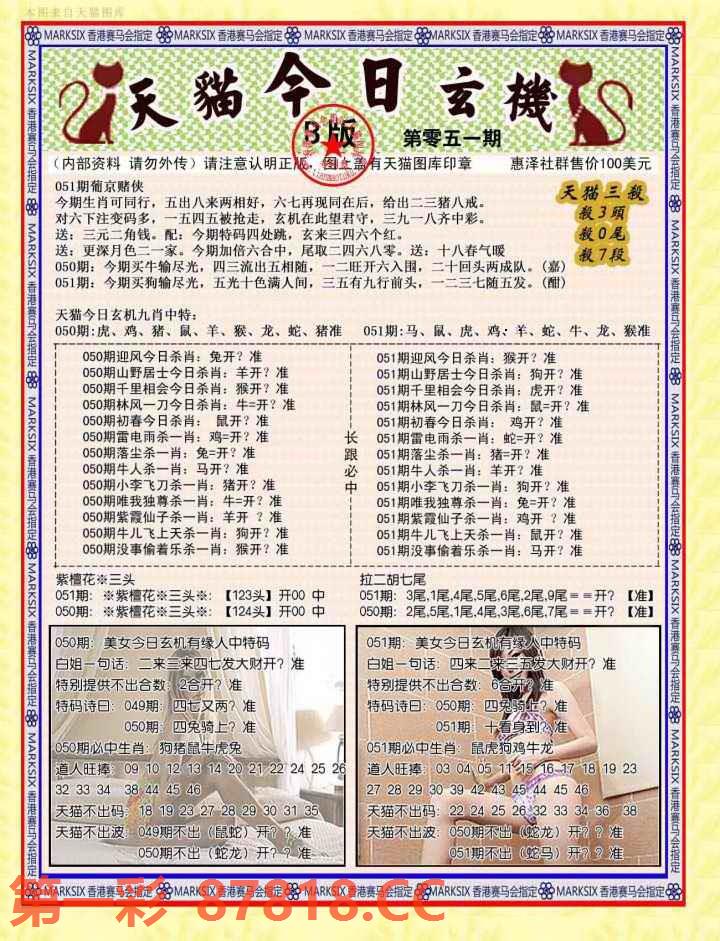 本图来自天猫图库
MARKSIX 香港赛马会指定 MARKSIX 香港赛马会指定 MARKSIX 香港赛马会指定 MARKSIX 香港赛马会指定 MARKSIX 香港赛马会指定
天猫今日玄機
B版
第零五一期
（内部资料 请勿外传）请注意认明正版，图上盖有天猫图库印章 惠泽社群售价100美元
051期葡京赌侠
今期生肖可同行，五出八来两相好，六七再现同在后，给出二三猪八戒。
对六下注变码多，一五四五被抢走，玄机在此望君守，三九一八齐中彩。
送：三元二角钱。配：今期特码四处跳，玄来三四六个红。
送：更深月色二一家。今期加倍六合中，尾取二四六八零。送：十八春气暖
050期：今期买牛输尽光，四三流出五相随，一二旺开六入围，二十回头两成队。(嘉)
051期：今期买狗输尽光，五光十色满人间，三五有九行前头，一二三七随五发。(酣)
天猫三殺
殺3頭
殺0尾
殺7段
天猫今日玄机九肖中特：
050期:虎、鸡、猪、鼠、羊、猴、龙、蛇、猪准 051期:马、鼠、虎、鸡、羊、蛇、牛、龙、猴准
050期迎风今日杀肖：兔开？准
050期山野居士今日杀肖：羊开？准
050期千里相会今日杀肖：猴开？准
050期林风一刀今日杀肖：牛=开？准
050期初春今日杀肖： 鼠开？准
050期雷电雨杀一肖：鸡=开？准
050期落尘杀一肖：兔=开？准
050期牛人杀一肖：马开？准
050期小李飞刀杀一肖：猪开？准
050期唯我独尊杀一肖：牛=开？准
050期紫霞仙子杀一肖：羊开 ？准
050期牛儿飞上天杀一肖：狗开？准
050期没事偷着乐杀一肖：猴开？准
长跟必中
051期迎风今日杀肖：猴开？准
051期山野居士今日杀肖：狗开？准
051期千里相会今日杀肖：虎开？准
051期林风一刀今日杀肖：鼠=开？准
051期初春今日杀肖： 鸡开？准
051期雷电雨杀一肖：蛇=开？准
051期落尘杀一肖：猪=开？准
051期牛人杀一肖：羊开？准
051期小李飞刀杀一肖：狗开？准
051期唯我独尊杀一肖：兔=开？准
051期紫霞仙子杀一肖：鸡开 ？准
051期牛儿飞上天杀一肖：鼠开？准
051期没事偷着乐杀一肖：马开？准
紫檀花※三头
051期：※紫檀花※三头※:【123头】开00 中
050期：※紫檀花※三头※:【124头】开00 中
拉二胡七尾
051期：3尾,1尾,4尾,5尾,6尾,2尾,9尾==开？【准】
050期：2尾,5尾,1尾,4尾,3尾,6尾,7尾==开？【准】
050期：美女今日玄机有缘人中特码
白姐一句话：二来三来四七发大财开？准
特别提供不出合数：2合开？准
特码诗曰：049期：四七又两？准
050期：四兔骑上？准
050期必中生肖：狗猪鼠牛虎兔
道人旺捧：09 10 12 13 14 20 21 22 24 25 26
32 33 34 38 44 45 46
天猫不出码：18 19 23 27 28 29 30 31 35
天猫不出波：049期不出（鼠蛇）开？？准
050期不出（蛇龙）开？？准
051期：美女今日玄机有缘人中特码
白姐一句话：四来二来三五发大财开？准
特别提供不出合数：6合开？准
特码诗曰：050期：四兔骑上？准
051期：十看身到？准
051期必中生肖：鼠虎狗鸡牛龙
道人旺捧：03 04 05 11 15 16 17 18 19 23
27 28 29 30 39 42 43 45 44 45 46
天猫不出码：22 24 25 26 32 33 34 36 38
天猫不出波：050期不出（蛇龙）开？？准
051期不出（蛇马）开？？准
MARKSIX 香港赛马会指定 MARKSIX 香港赛马会指定 MARKSIX 香港赛马会指定 MARKSIX 香港赛马会指定 MARKSIX 香港赛马会指定
第一彩 87818.CC